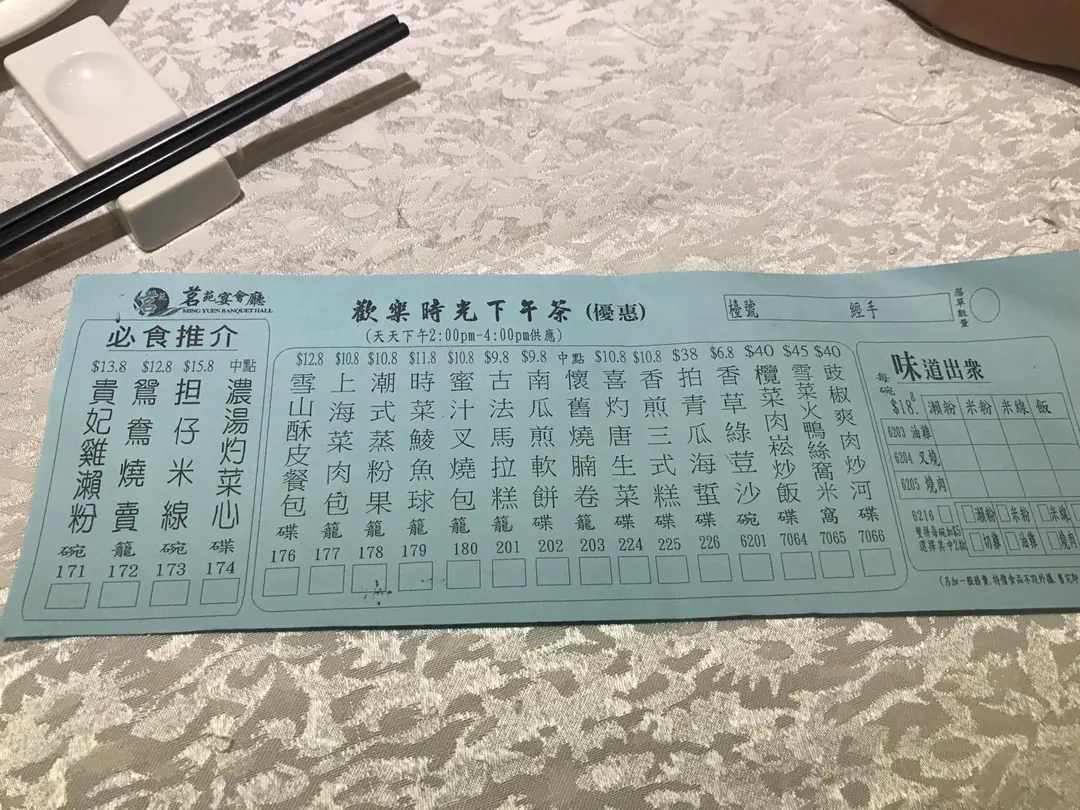 茗苑宴會廳
MING YUEN BANQUET HALL
歡樂時光下午茶 (優惠)
(天天下午2:00pm-4:00pm供應)
檯號
經手
落單數量
必食推介
$13.8 貴妃雞瀨粉 碗 171
$12.8 鴛鴦燒賣 籠 172
$15.8 担仔米線 碗 173
中點 濃湯灼菜心 碟 174
$12.8 雪山酥皮餐包 碟 176
$10.8 上海菜肉包 籠 177
$10.8 潮式蒸粉果 籠 178
$11.8 時菜鯪魚球 籠 179
$10.8 蜜汁叉燒包 籠 180
$9.8 古法馬拉糕 籠 201
$9.8 南瓜煎軟餅 碟 202
中點 懷舊燒腩卷 籠 203
$10.8 喜灼唐生菜 碟 224
$10.8 香煎三式糕 碟 225
$38 拍青瓜海蜇 碟 226
$6.8 香草綠荳沙 碗 6201
$40 欖菜肉崧炒飯 碟 7064
$45 雪菜火鴨絲窩米 窩 7065
$40 豉椒爽肉炒河 碟 7066
味道出衆
每碗 $18.8 瀨粉 米粉 米線 飯
6203 油雞
6204 叉燒
6205 燒肉
6216 瀨粉 米粉 米線
雙拼每碗加$5
選擇其中2款 切雞 油雞 燒肉